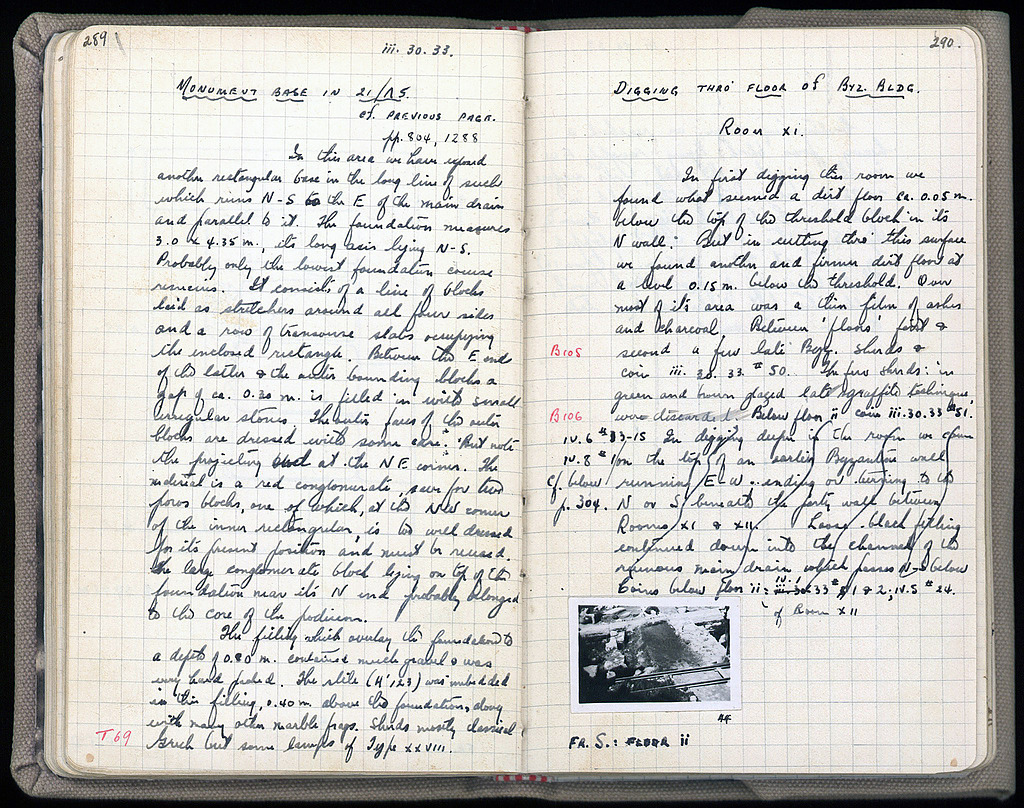 289
iii. 30. 33.
MONUMENT BASE IN 21/ΛΕ.
cf. PREVIOUS PAGE.
pp. 804, 1288
In this area we have exposed
another rectangular base in the long line of such
which runs N-S to the E of the main drain
and parallel to it. The foundation measures
3.0 x 4.35 m., its long axis lying N-S.
Probably only the lowest foundation course
remains. It consists of a line of blocks
laid as stretchers around all four sides
and a row of transverse slabs occupying
the enclosed rectangle. Between the E. ends
of the latter & the outer bounding blocks a
gap of ca. 0.20 m. is filled in with small
irregular stones. The outer faces of the outer
blocks are dressed with some care. But note
the projecting at the NE corner. The
material is a red conglomerate, save for two
poros blocks, one of which, at the NW corner
of the inner rectangular, is too well dressed
for its present position and must be reused.
The large conglomerate block lying on top of the
foundation near its N end probably belonged
to the core of the podium.
The filling which overlay the foundation to
a depth of 0.80 m. contained much gravel & was
very hard packed. The stele (H'123) was imbedded
in this filling, 0.40 m. above the foundation, along
with many other marble frags. Sherds mostly classical
T 69
Greek but some lamps of Type XXVIII.
290.
DIGGING THRO' FLOOR OF BYZ. BLDG.
ROOM XI.
In first digging this room we
found what seemed a dirt floor ca. 0.05 m.
below the top of the threshold block in its
N wall. But in cutting thro' this surface
we found another and firmer dirt floor at
a level 0.15 m. below the threshold. Over
most of its area was a thin film of ashes
and charcoal. Between 'floors' first &
B105
second a few late Byz. sherds &
coin iii. 30. 33. # 50. The few sherds: in
green and brown glazed late sgraffito technique,
B106
were discarded. Below floor ii coin iii.30.33 #51.
IV. 6 #13-15 In digging deeper in the room we came
IV. 8 #1 on the top of an earlier Byzantine wall
cf. below running E-W. ending or turning to the
p. 304. N or S beneath the party wall between
Rooms XI & XII. Loose black filling
continued down into the channel of the
ruinous main drain which passes N-S below
Coins below floor ii: iii.30.33 IV.1 # 1 & 2; IV.5 # 24.
of Room XII
44
FR. S.: FLOOR ii